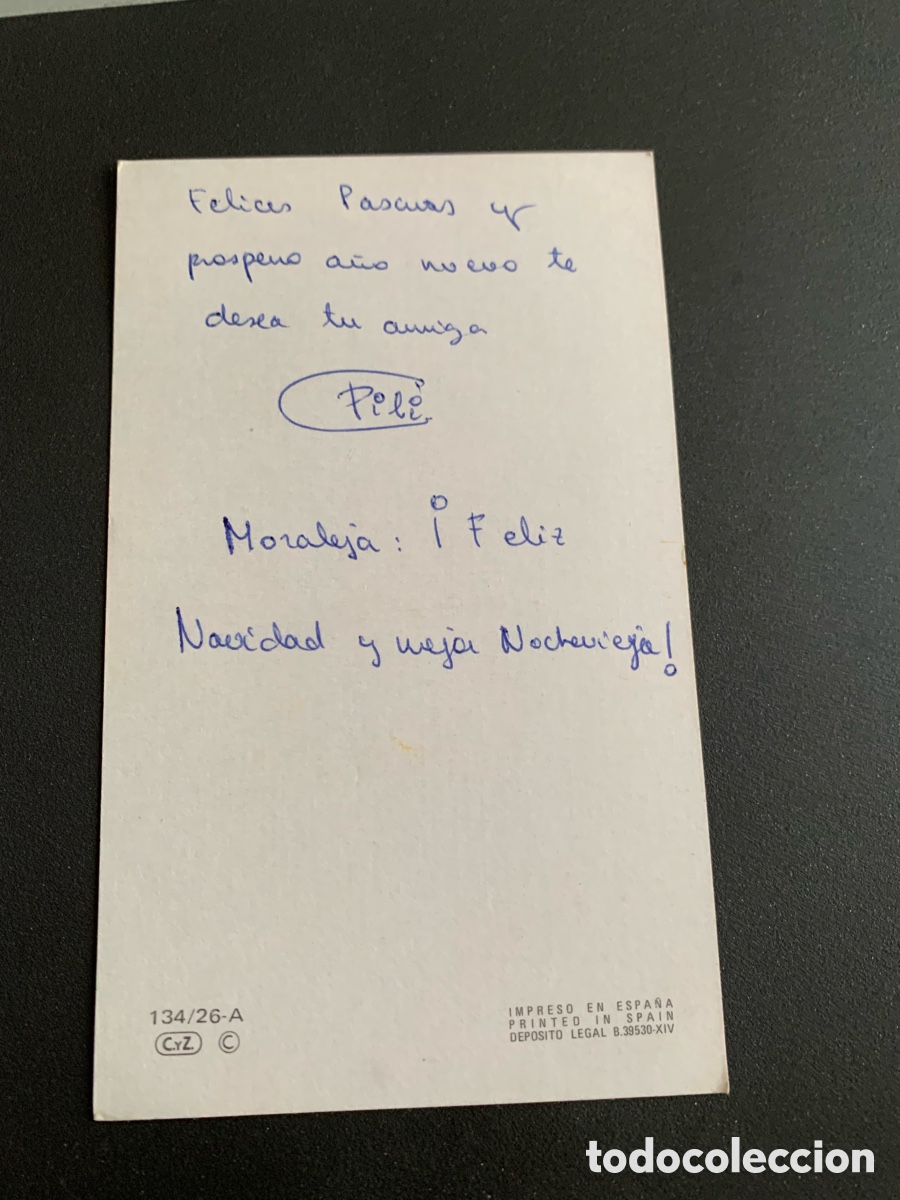 Felices Pascuas y
prospero año nuevo te
desea tu amiga
Pili
Moraleja: ¡Feliz
Navidad y mejor Nochevieja!
134/26-A
C.Y.Z. ©
IMPRESO EN ESPAÑA
PRINTED IN SPAIN
DEPOSITO LEGAL B.39530-XIV
todocoleccion